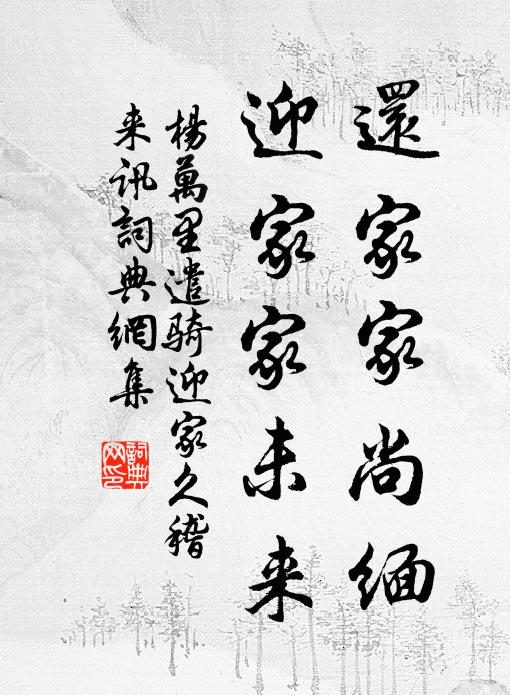 還家家尚緬
迎家家未来
楊萬里遣騎迎家久稽
来訊詞典網集
詞典
网印